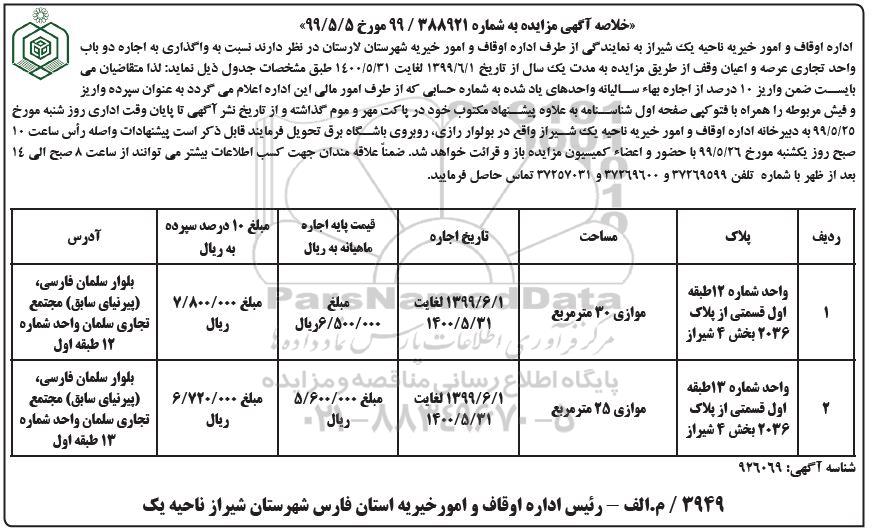 «خلاصه آگهی مزایده به شماره ۳۸۸۹۲۱ / ۹۹ مورخ ۹۹/۵/۵»
اداره اوقاف و امور خیریه ناحیه یک شیراز به نمایندگی از طرف اداره اوقاف و امور خیریه شهرستان لارستان در نظر دارند نسبت به واگذاری به اجاره دو باب
واحد تجاری عرصه و اعیان وقف از طریق مزایده به مدت یک سال از تاریخ ۱۳۹۹/۶/۱ لغایت ۱۴۰۰/۵/۳۱ طبق مشخصات جدول ذیل نماید: لذا متقاضیان می
بایست ضمن واریز ۱۰ درصد از اجاره بهاء سـالیانه واحدهای یاد شده به شماره حسابی که از طرف امور مالی این اداره اعلام می گردد به عنوان سپرده واریز
و فیش مربوطه را همراه با فتوکپی صفحه اول شناسـنامه به علاوه پیشـنهاد مکتوب خود در پاکت مهر و موم گذاشته و از تاریخ نشر آگهی تا پایان وقت اداری روز شنبه مورخ
۹۹/۵/۲۵ به دبیرخانه اداره اوقاف و امور خیریه ناحیه یک شـیراز واقع در بولوار رازی، روبروی باشـگاه برق تحویل فرمایند قابل ذکر است پیشنهادات واصله رأس ساعت ۱۰
صبح روز یکشنبه مورخ ۹۹/۵/۲۶ با حضور و اعضاء کمیسیون مزایده باز و قرائت خواهد شد. ضمناً علاقه مندان جهت کسب اطلاعات بیشتر می توانند از ساعت ۸ صبح الی ۱۴
بعد از ظهر با شماره تلفن ۳۷۲۶۹۵۹۹ و ۳۷۲۶۹۶۰۰ و ۳۷۲۵۷۰۳۱ تماس حاصل فرمایید.
ردیف پلاک مساحت تاریخ اجاره قیمت پایه اجاره ماهیانه به ریال مبلغ ۱۰ درصد سپرده به ریال آدرس
۱ واحد شماره ۱۲طبقه اول قسمتی از پلاک ۲۰۳۶ بخش ۴ شیراز موازی ۳۰ مترمربع ۱۳۹۹/۶/۱ لغایت ۱۴۰۰/۵/۳۱ مبلغ ۶/۵۰۰/۰۰۰ریال مبلغ ۷/۸۰۰/۰۰۰ ریال بلوار سلمان فارسی، (پیرنیای سابق) مجتمع تجاری سلمان واحد شماره ۱۲ طبقه اول
۲ واحد شماره ۱۳طبقه اول قسمتی از پلاک ۲۰۳۶ بخش ۴ شیراز موازی ۲۵ مترمربع ۱۳۹۹/۶/۱ لغایت ۱۴۰۰/۵/۳۱ مبلغ ۵/۶۰۰/۰۰۰ ریال مبلغ ۶/۷۲۰/۰۰۰ ریال بلوار سلمان فارسی، (پیرنیای سابق) مجتمع تجاری سلمان واحد شماره ۱۳ طبقه اول
ParsNamadData
مرکز فرآوری اطلاعات پارس نماد داده ها
پایگاه اطلاع رسانی مناقصه و مزایده
۰۲۱-۸۸۳۴۹۶۷۰-۵
شناسه آگهی: ۹۲۶۰۶۹
۳۹۴۹ / م.الف – رئیس اداره اوقاف و امورخیریه استان فارس شهرستان شیراز ناحیه یک